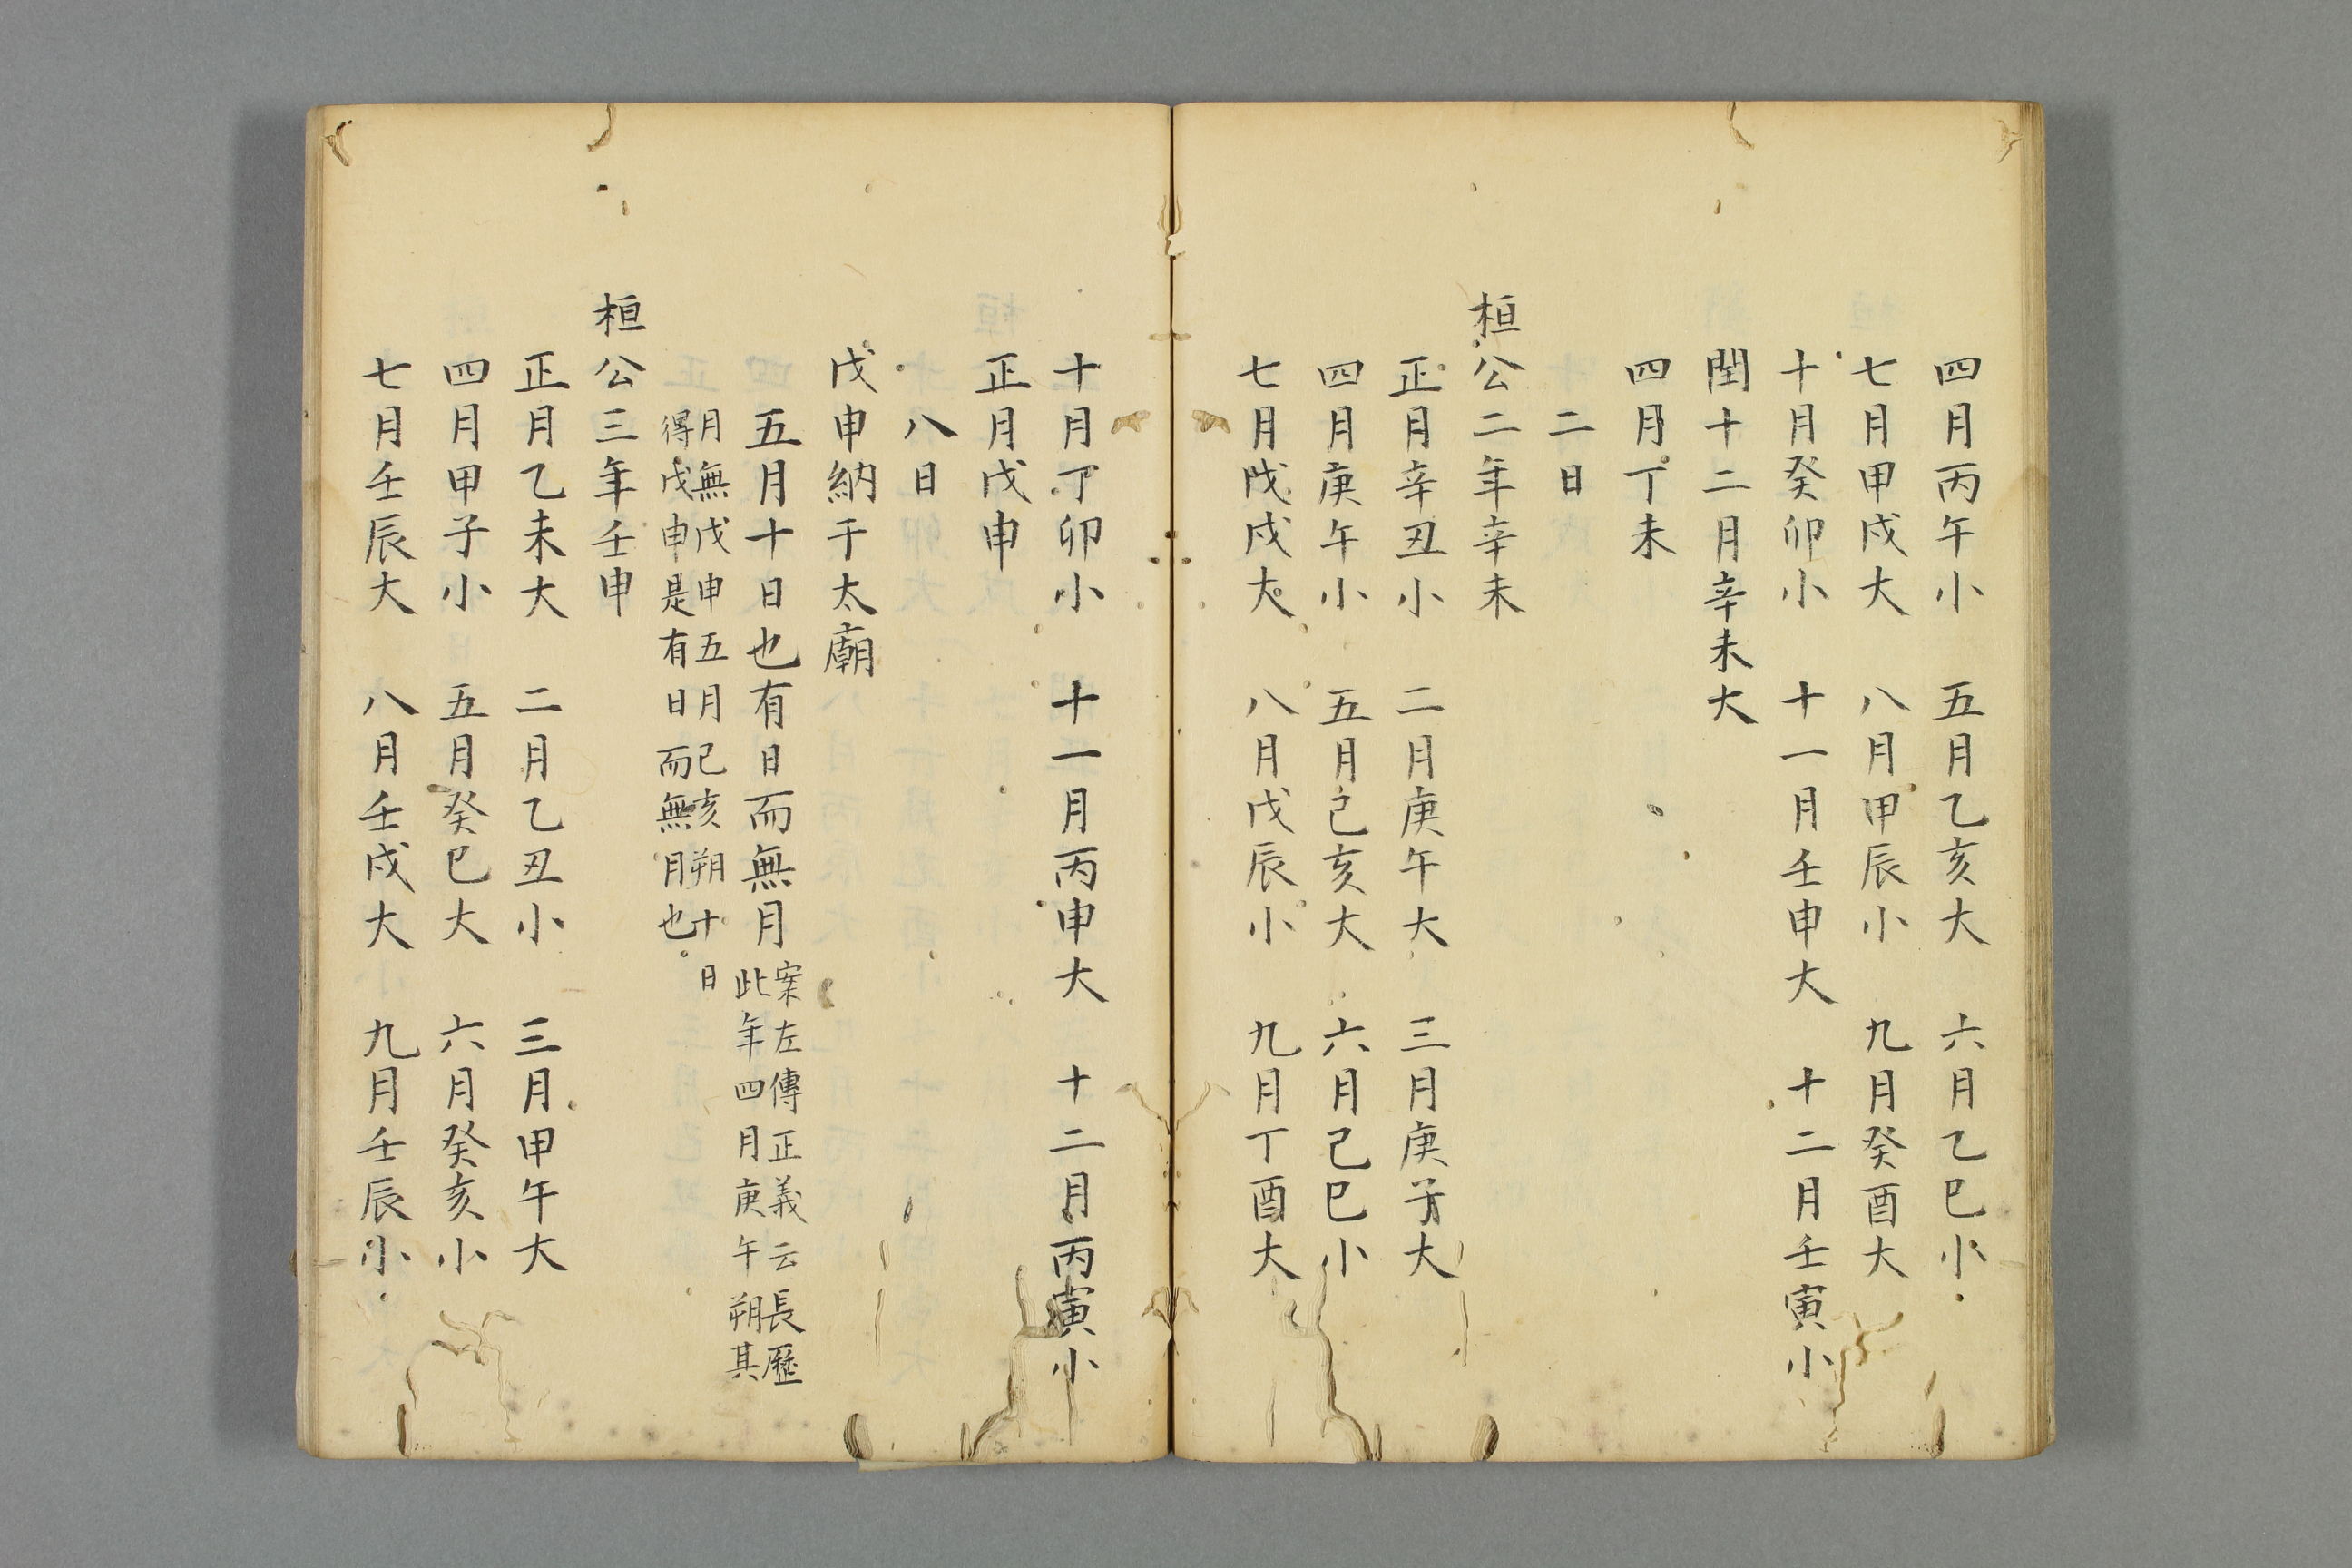 四月丙午小　五月乙亥大　六月乙巳小
七月甲戌大　八月甲辰小　九月癸酉大
十月癸卯小　十一月壬申大　十二月壬寅小
閏十二月辛未大
四月丁未
二日
桓公二年辛未
正月辛丑小　二月庚午大　三月庚子大
四月庚午小　五月己亥大　六月己巳小
七月戊戌大　八月戊辰小　九月丁酉大
十月丁卯小　十一月丙申大　十二月丙寅小
正月戊申
八日
戊申納于太廟
五月十日也有日而無月
案左傳正義云長歷
此年四月庚午朔其
月無戊申五月己亥朔十日
得戊申是有日而無月也
桓公三年壬申
正月乙未大　二月乙丑小　三月甲午大
四月甲子小　五月癸巳大　六月癸亥小
七月壬辰大　八月壬戌大　九月壬辰小